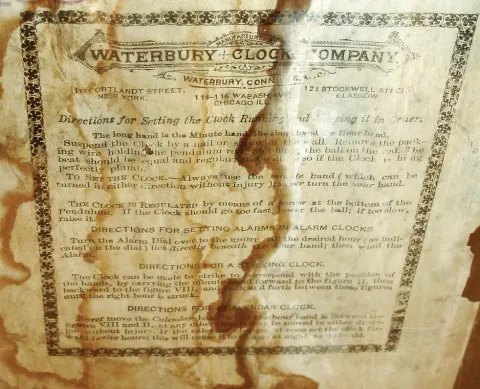 MANUFACTURED
WATERBURY CLOCK COMPANY,
WATERBURY, CONN. U.S.A.
10 CORTLANDT STREET, NEW YORK.
114-116 WABASH AVE CHICAGO ILL.
121 STOCKWELL STREET GLASGOW
Directions for Setting the Clock Running and Keeping it in Order.
The long hand is the Minute hand, the short hand the Hour hand.
Suspend the Clock by a nail or screw in the wall. Remove the pack-
ing wire holding the pendulum rod and hook the ball on the rod. The
beat should be equal and regular, and will be so if the Clock is hung
perfectly plumb.
To SET THE CLOCK.—Always use the minute hand (which can be
turned in either direction without injury) never turn the hour hand.
THE CLOCK IS REGULATED by means of a screw at the bottom of the
Pendulum. If the Clock should go too fast lower the ball; if too slow,
raise it.
DIRECTIONS FOR SETTING ALARMS IN ALARM CLOCKS.
Turn the Alarm Dial over to the the desired hour (as indi-
cated on the dial) lies directly beneath the hour hand; then wind the
Alarm.
DIRECTIONS FOR A STRIKING CLOCK.
The Clock can be made to strike to correspond with the position of
the hands, by carrying the minute hand forward to the figure then
backward to the figure VIII, and back and forth between these figures
until the right hour is struck.
DIRECTIONS FOR CALENDAR CLOCK.
move the Calendar hour hand is between the
figures VIII and II, at any other be moved in either direc-
without injury. If the
hours this will cause it to at night